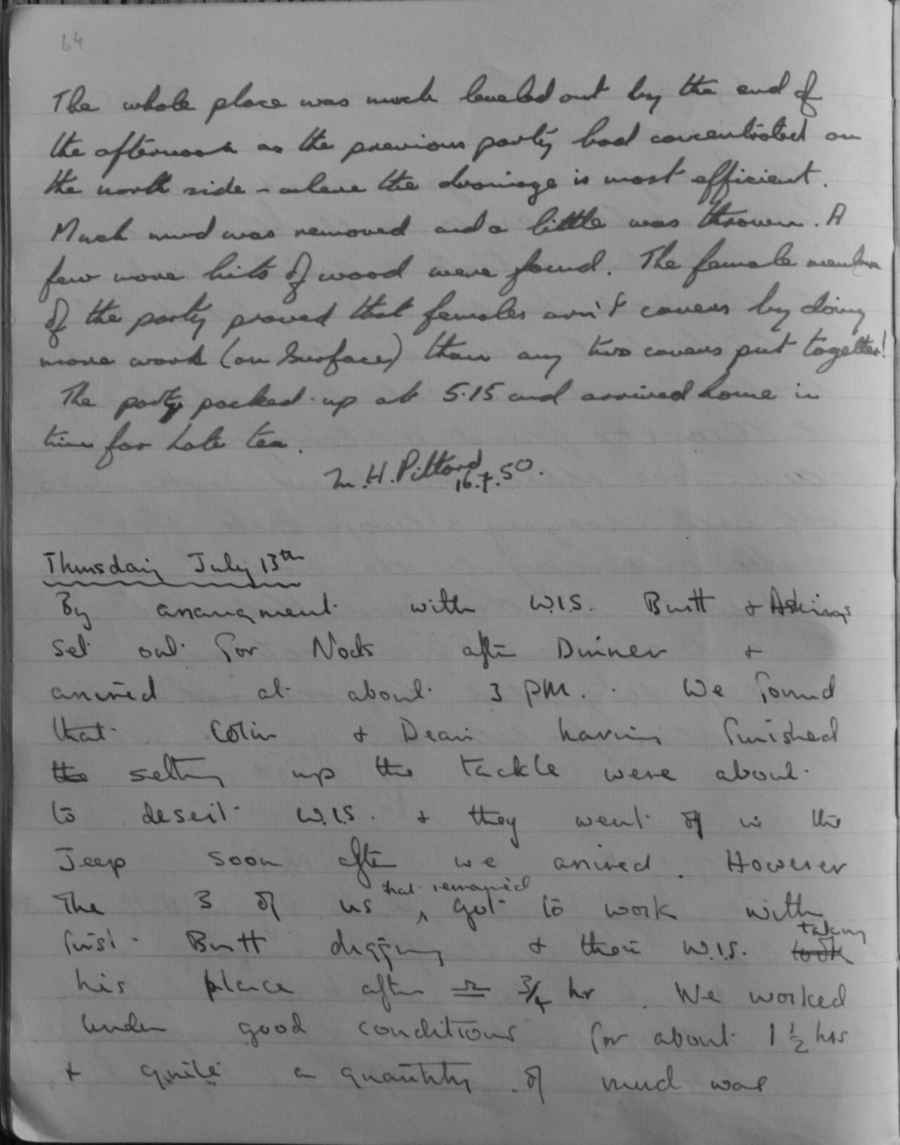 64
The whole place was much leveled out by the end of
the afternoon as the previous party had concentrated on
the north side - where the drainage is most efficient.
Much mud was removed and a little was thrown. A
few more bits of wood were found. The female members
of the party proved that females arn't cavers by doing
more work (on surface) than any two cavers put together!
The party packed up at 5.15 and arrived home in
time for late tea.
M.H. Pittard
16.7.50.
Thursday July 13th
By arrangment with W.I.S. Butt &
set out for Nods after Dinner &
arrived at about 3 PM. We found
that Colin & Dean having finished
the setting up the tackle were about
to desert W.I.S. & they went off in the
Jeep soon after we arrived. However
The 3 of us that remained got to work with
first Butt digging & then W.I.S. took taking
his place after 3/4 hr. We worked
under good conditions for about 1 1/2 hrs
& quite a quantity of mud was